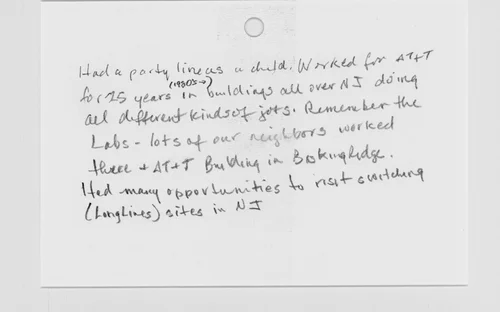 Had a party line as a child. Worked for AT+T
(1980's→)
for 25 years in buildings all over NJ doing
all different kinds of jobs. Remember the
Labs - lots of our neighbors worked
there + AT+T Building in Basking Ridge.
Had many opportunities to visit switching
(Long Lines) sites in NJ